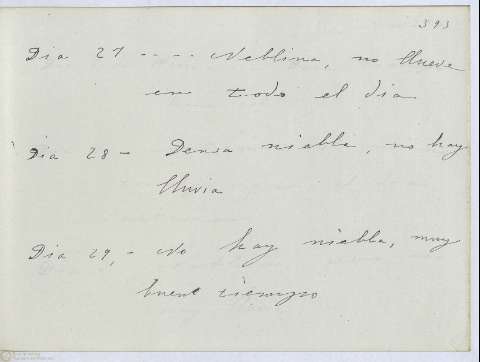 393
Dia 27 - - - - Neblina, no llueve
en todo el dia
Dia 28 - Densa niebla, no hay
lluvia
Dia 29, - No hay niebla, muy
buen tiempo